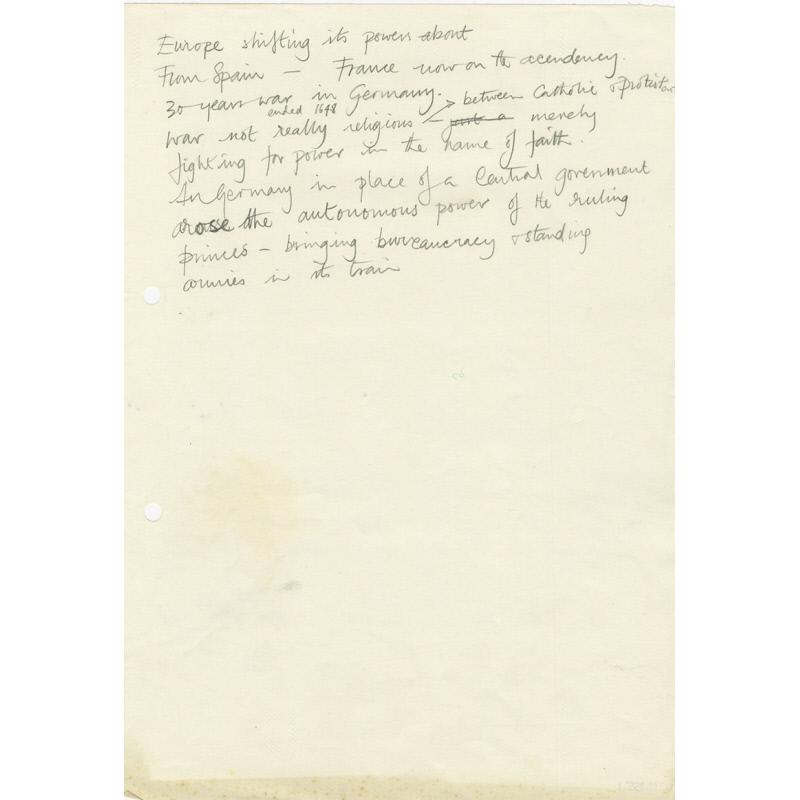 Europe shifting its powers about
From Spain — France now on the acendency.
30-year war in Germany.
ended 1648 → between Catholic & Protestant
war not really religious — just a merely
fighting for power in the name of faith.
In Germany in place of a Central government
arose the autonomous power of the ruling
princes — bringing bureaucracy & standing
armies in its train